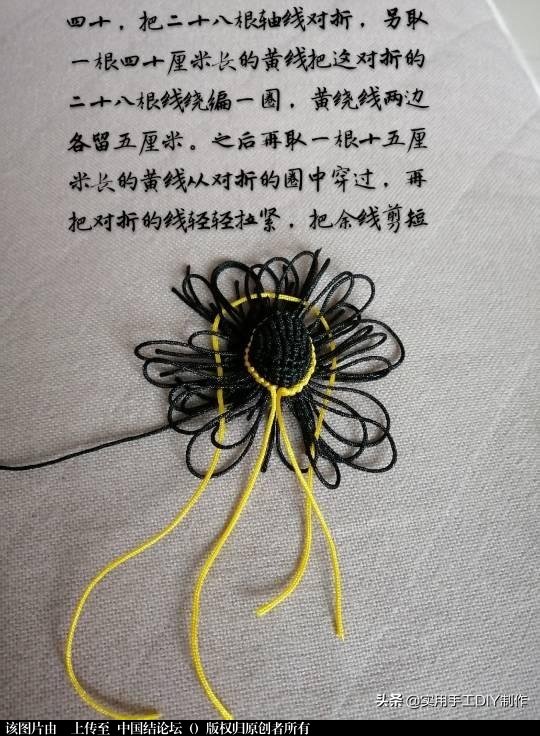 四十，把二十八根轴线对折，另取
一根四十厘米长的黄线把这对折的
二十八根线绕编一圈，黄绕线两边
各留五厘米。之后再取一根十五厘
米长的黄线从对折的圈中穿过，再
把对折的线轻轻拉紧，把余线剪短
头条 @实用手工DIY制作
该图片由 上传至 中国结论坛 () 版权归原创者所有